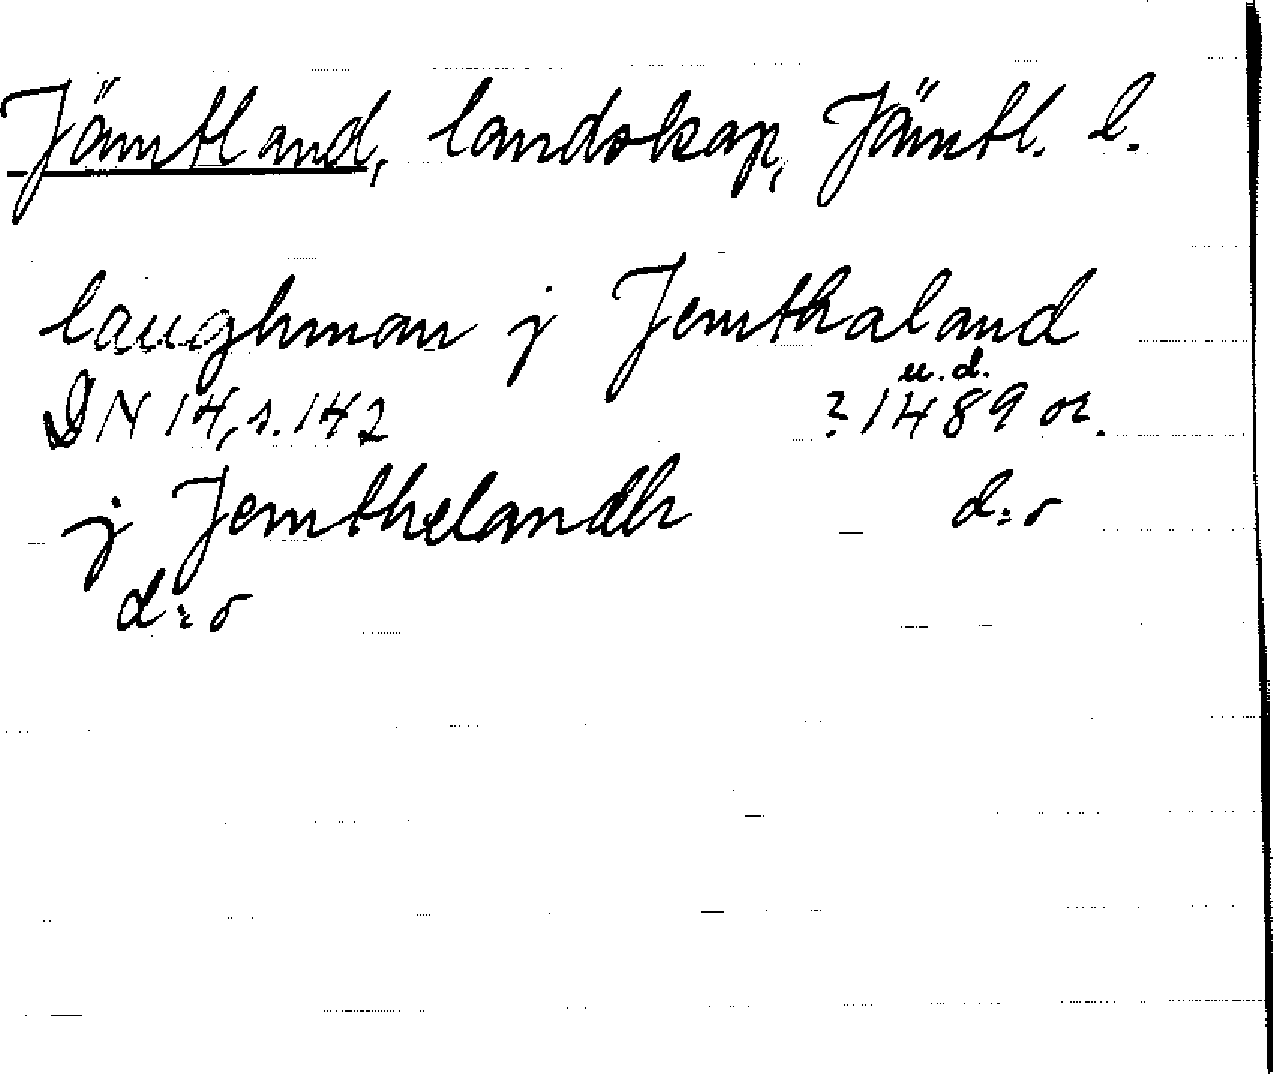 Jämtland, landskap, Jämtl. l.
laughman j Jemthaland
u. d.
DN 14, s. 142 ? 1489 or.
j Jemthelandh d:o
d:o